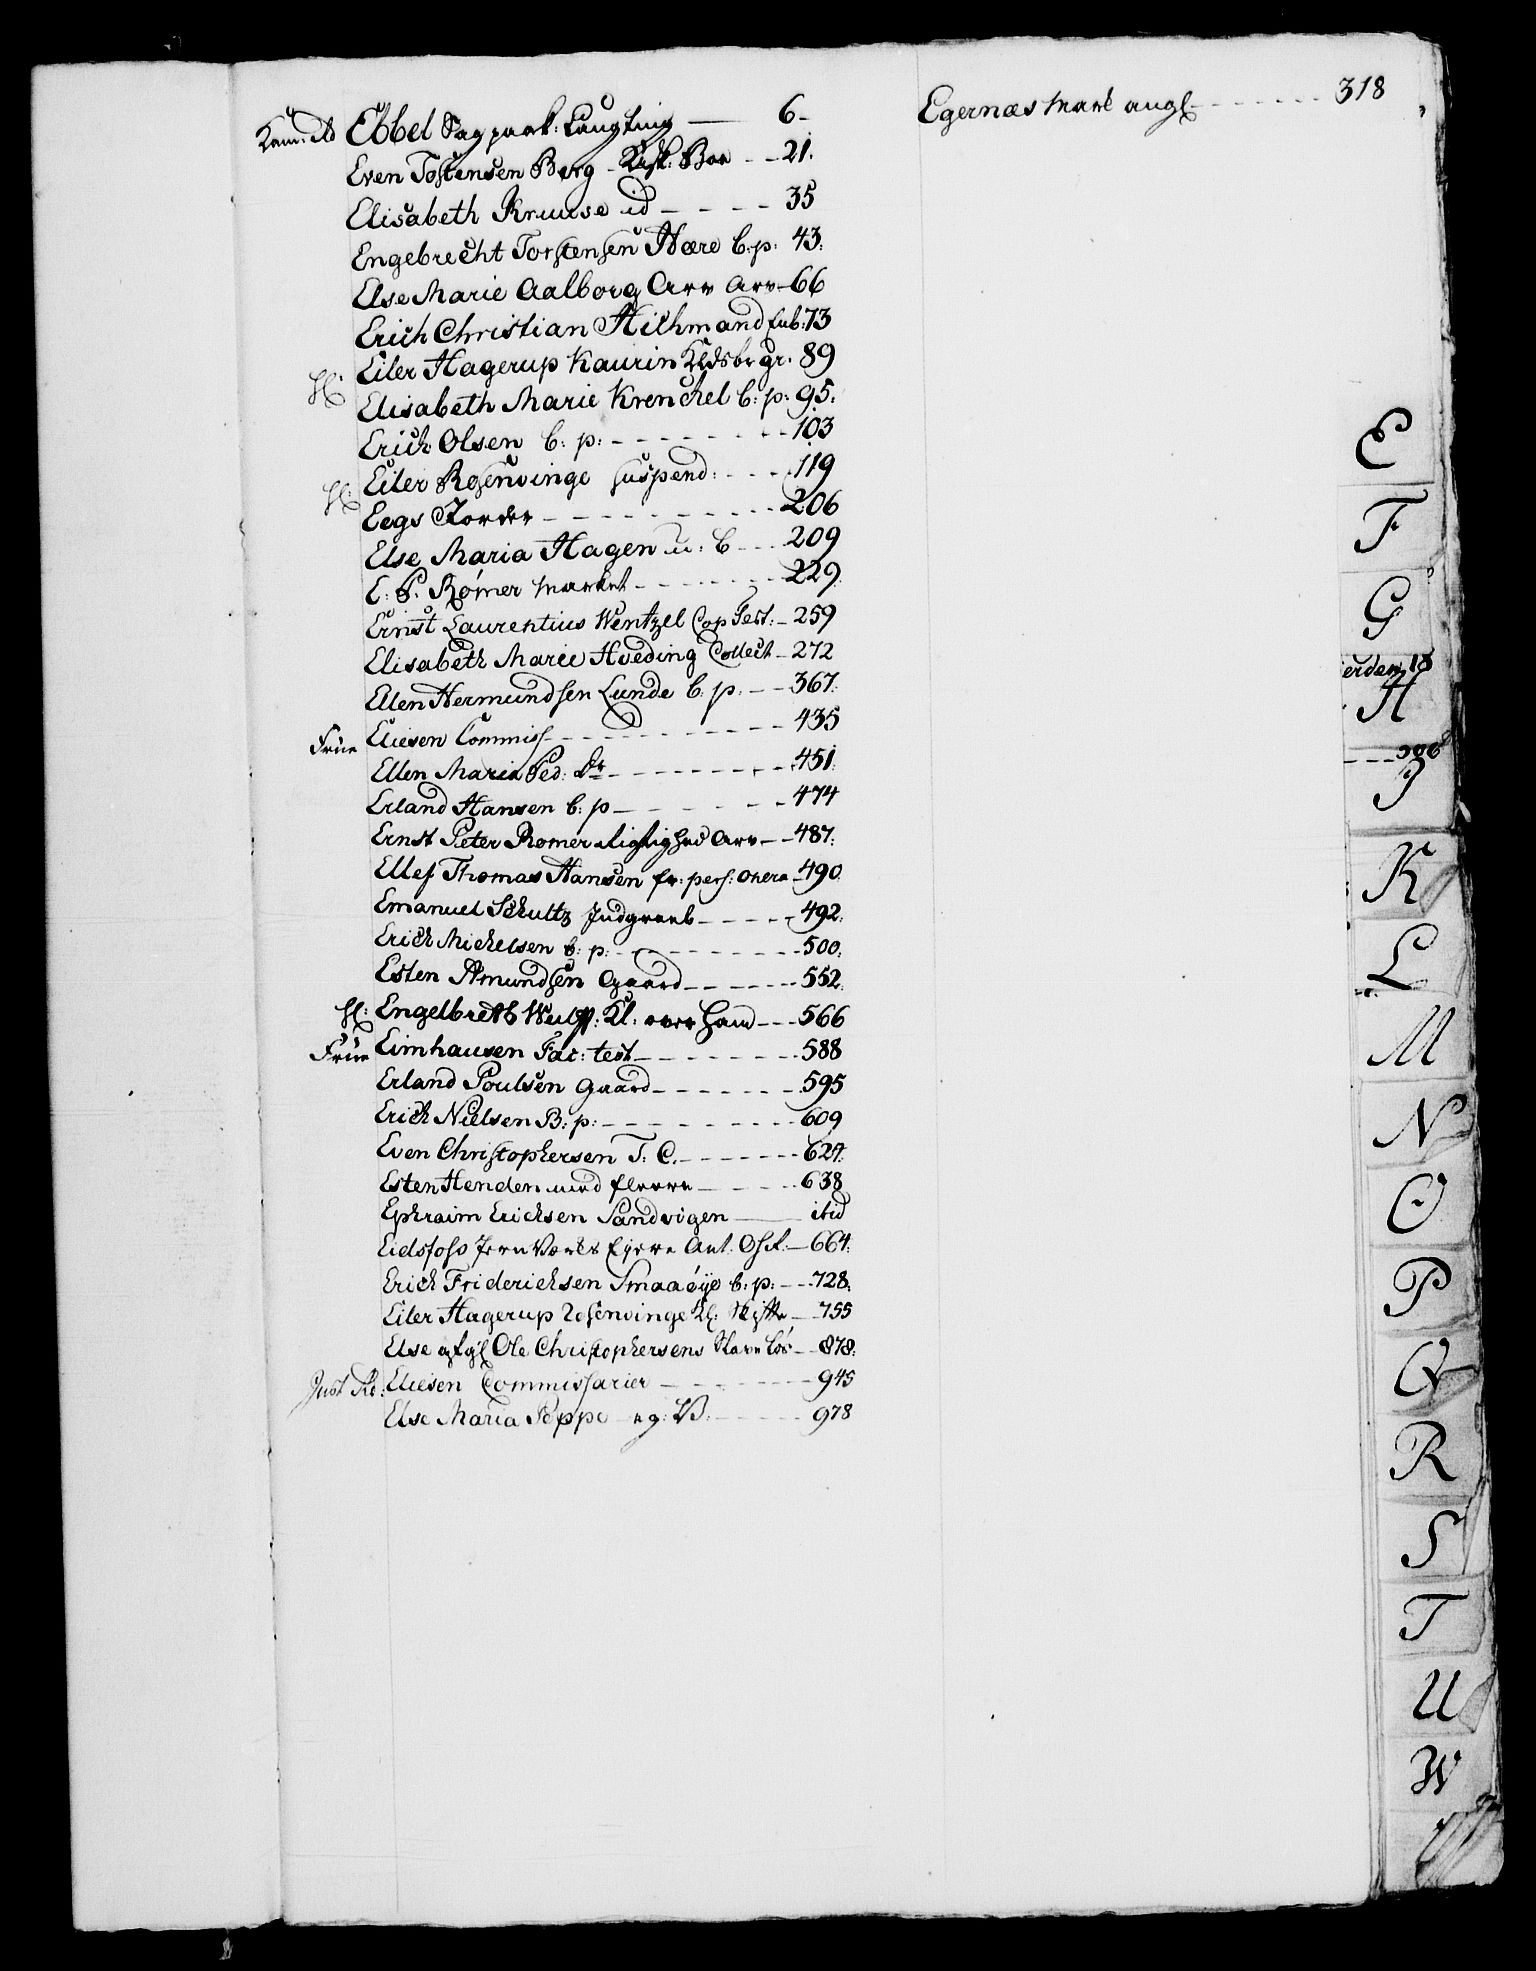 Kam: Rd Ebbel Sag park: Laugting — 6 -
Even Tostensen Berg - Kisk: Boe - - 21.
Elisabeth Kruuse id - - - - - 35
Engebrecht Torstensen Hære b: p: 43:
Else Marie Aalborg Arv Arv - 66
Erich Christian Hichmand Enb: 73
Hl: Eiler Hagerup Kaurin Kldsbr gr. 89
Elisabeth Marie Krenckel b: p: 95.
Erich Olsen b: p: - - - - - - - - 103
Hl: Eiler Rosenvinge suspend: - - - - 119
Eegs Jorder - - - - - - - - - - 206
Else Maria Hagen u: b - - - 209
E: P. Rømer Market - - - - - - - 229.
Ernst Laurentius Wentzel Cop Test: - 259
Elisabeth Marie Hveding Collect - 272
Ellen Hermundsen Lunde b: p: - - 367.
Frue Eliesen Commiss - - - - - - - - - - 435
Ellen Maria Ped: Dr - - - - - - - - - 451.
Erland Hansen b: p - - - - - - - 474
Ernst Peter Romer Arv - - 487:
Ellef Thomas Hansen fr: pers: onera - 490
Emanuel Schultz Indgreeb - - - - - 492.
Erich Michelsen b: p: - - - - - - - - - 500.
Esten Amundsen Gaard - - - - - - - 552.
Hl: Engelbreth Kl: over Ham - - - 566
Frue Eimhausen Fac: test - - - - - - - - 588
Erland Poulsen Gaard - - - - - - - 595
Erich Nielsen B: p: - - - - - - - - - - 609
Even Christophersen T: C. - - - - - - - 624.
Esten Henden med fleere - - - - - 638
Ephraim Ericksen Sandvigen — ibid
Eidsfoss Jern Værks Ejere Ant. - 664.
Erich Friderichsen Smaaøye b: p: - - - 728.
Eiler Hagerup Rosenvinge Kl: Skifte - - 755
Else Ole Christophersens Slave løs - - 878.
Just Rd: Eliesen Commissarier - - - - - - - - 945
Else Maria Poppe - eg: VB: - - - - - 978
Egernæs Mark angl - - - - - - - 318
E
F
G
erden 18
H
- - - 398
I
K
L
M
N
O
P
Q
R
S
T
U
W